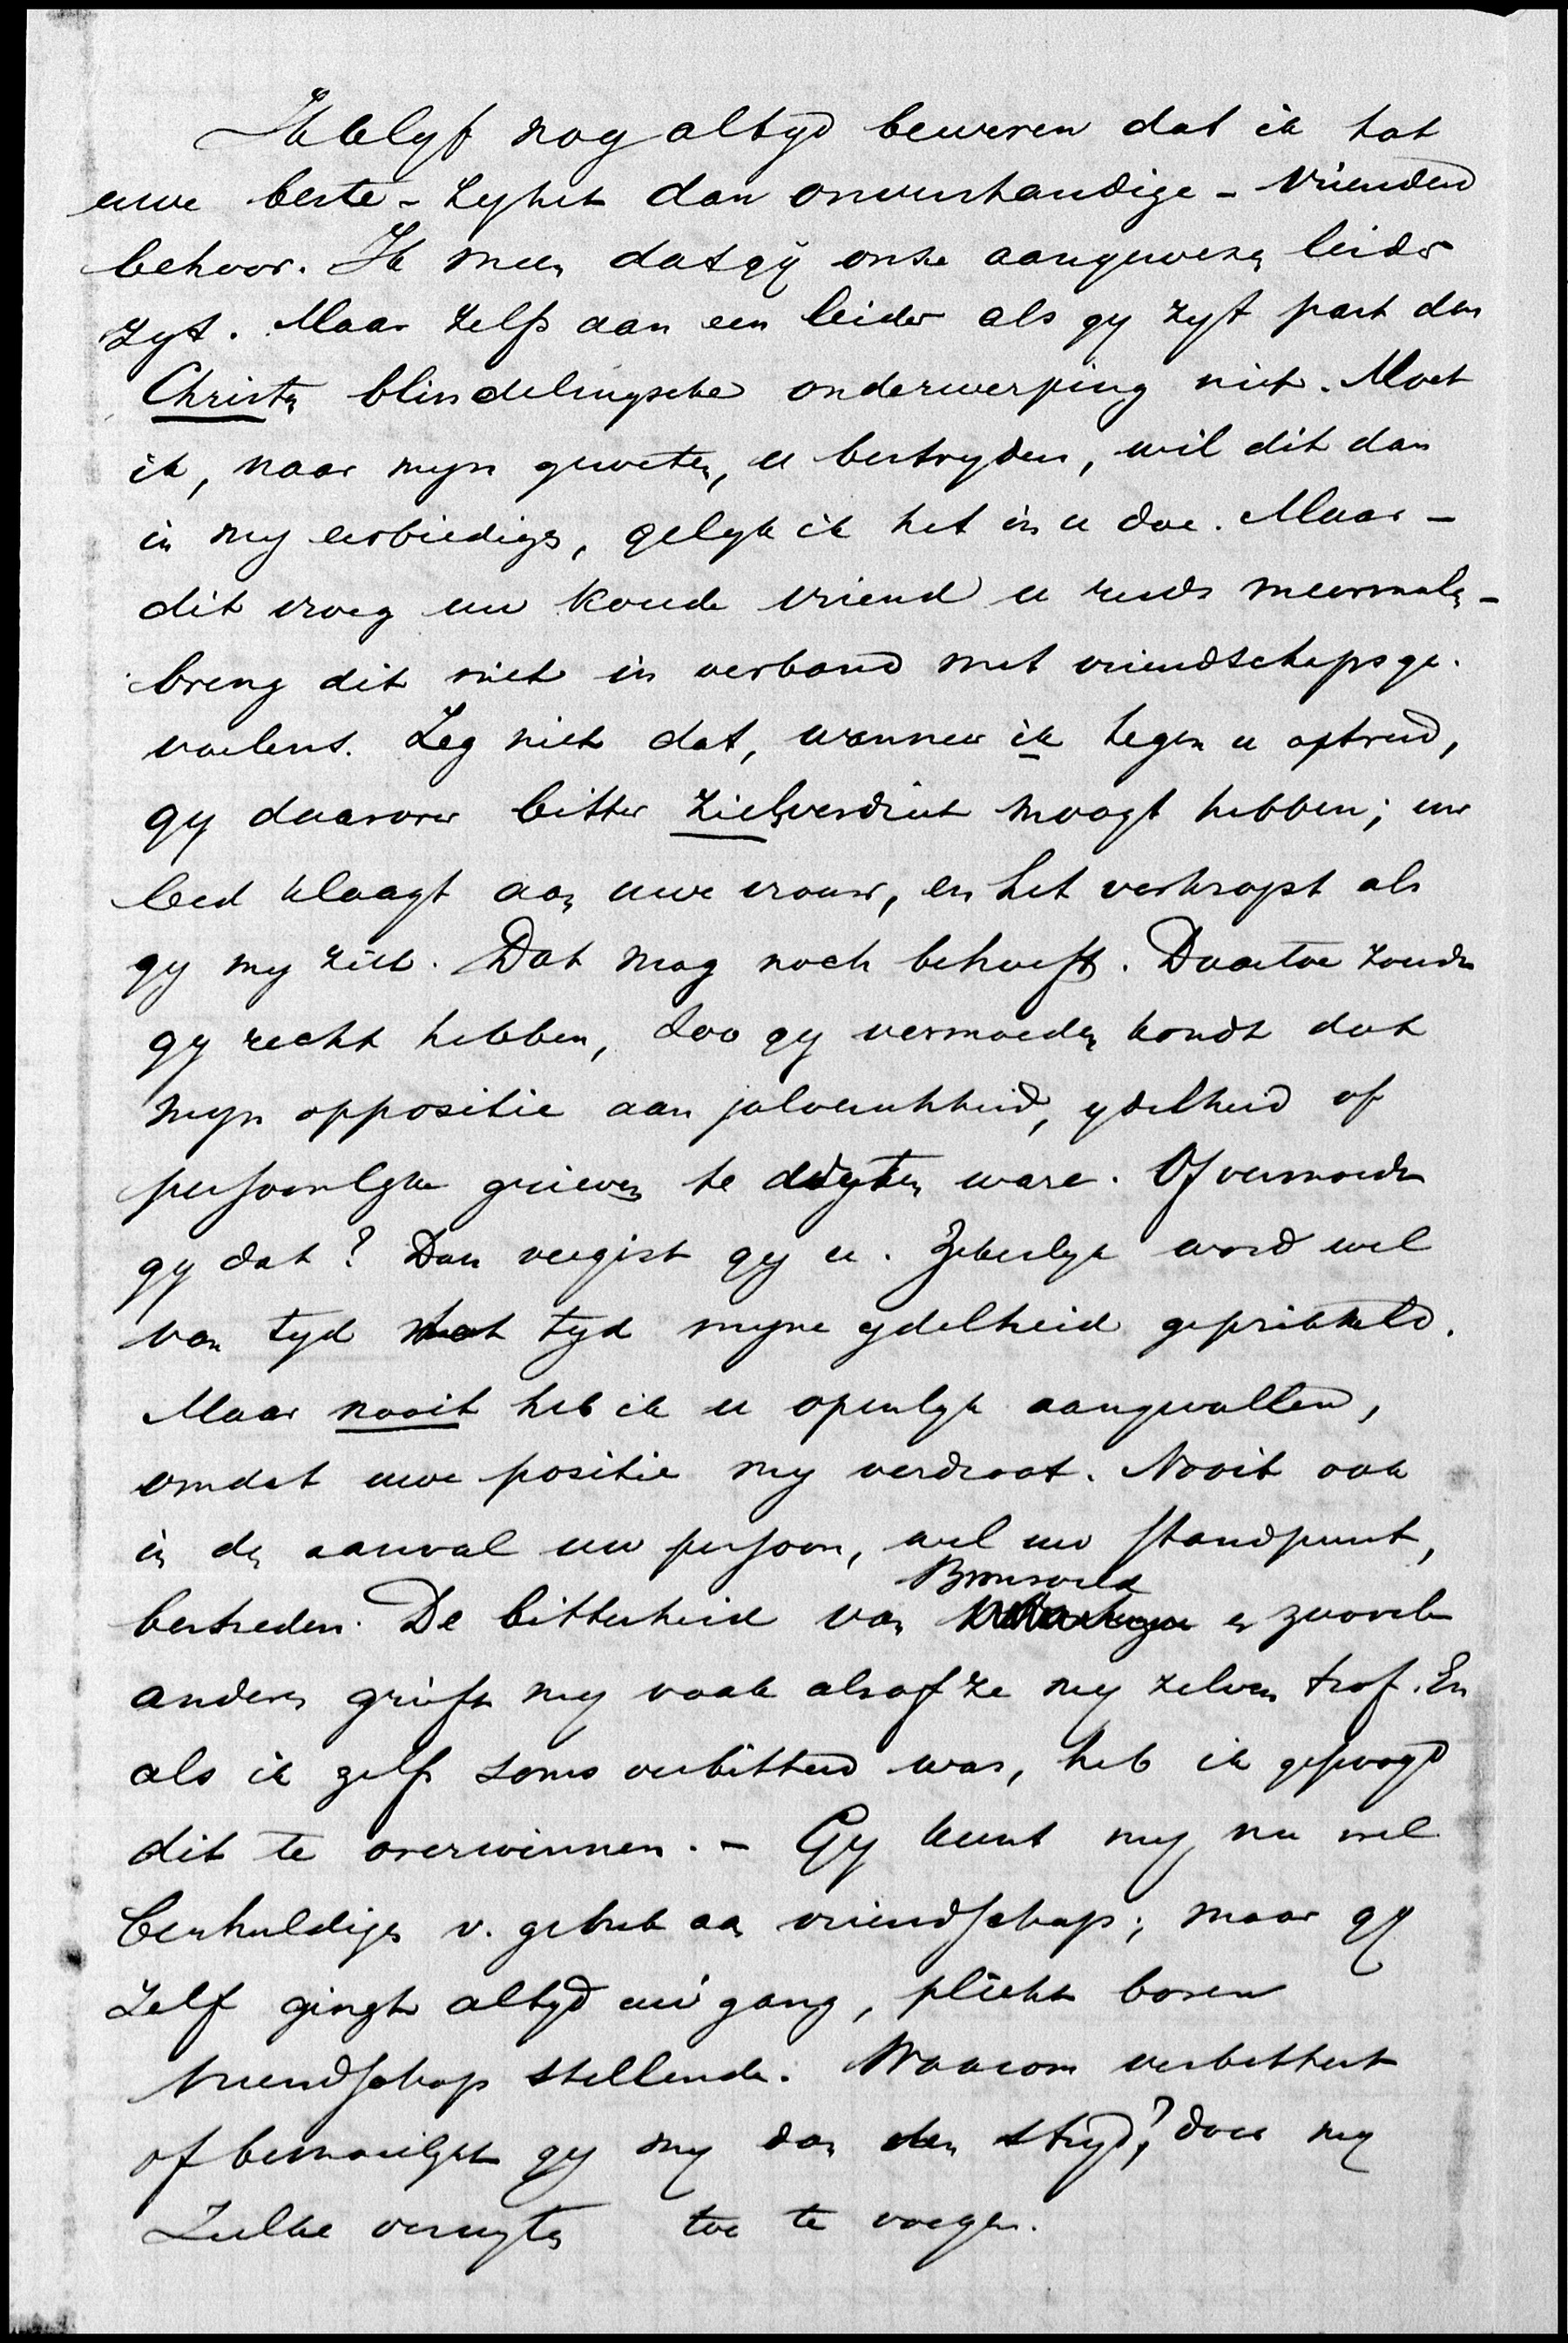 Ik blyf nog altyd beweren dat ik tot
uwe beste - zy het dan onverstandige - vrienden
behoor. Ik meen dat gÿ onze aangewezen leider
zyt. Maar zelfs aan een leider als gy zyt past den
Christen blindelingsche onderwerping niet. Moet
ik, naar myn geweten, u bestryden, wil dit dan
in my eerbiedigen, gelyk ik het in u doe. Maar -
dit vroeg uw koude vriend u reeds meermalen -
breng dit niet in verband met vriendschapsge-
voelens. Zeg niet dat, wanneer ik tegen u optreed,
gy daarover bitter zielsverdriet moogt hebben; uw
leed klaagt aan uwe vrouw, en het verkropt als
gy my ziet. Dat mag noch behoeft. Daartoe zoudt
gy recht hebben, zoo gy vermoeden kondt dat
myn oppositie aan jaloerschheid, ydelheid of
persoonlyke grieven te wyten ware. Of vermoedt
gy dat? Dan vergist gy u. Zekerlyk word wel
van tyd tot tyd myne ydelheid geprikkeld.
Maar nooit heb ik u openlyk aangevallen,
omdat uwe positie my verdroot. Nooit ook
in den aanval uw persoon, wel uw standpunt,
bestreden. De bitterheid van Bronsveld en zoovele
anderen grieft my vaak alsof ze my zelven trof. En
als ik zelf soms verbitterd was, heb ik gepoogd
dit te overwinnen. - Gy kunt my nu wel
beschuldigen v. gebrek aan vriendschap; maar gy
zelf gingt altyd uw gang, plicht boven
vriendschap stellende. Waarom verbittert
of bemoeilykt gy my dan den stryd?, door my
zulke verwyten toe te voegen.